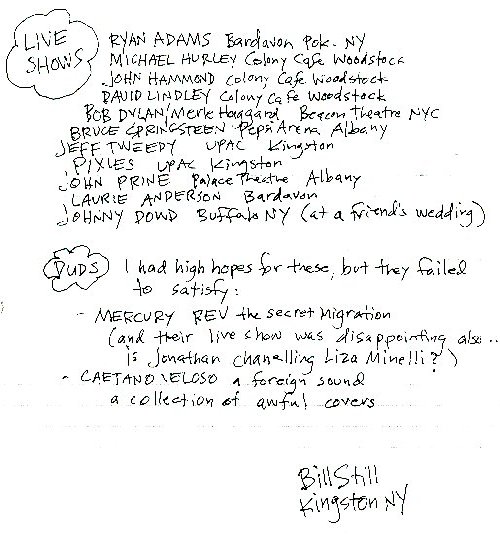 LIVE SHOWS
RYAN ADAMS Bardavon Pok. NY
MICHAEL HURLEY Colony Cafe Woodstock
JOHN HAMMOND Colony Cafe Woodstock
DAVID LINDLEY Colony Cafe Woodstock
BOB DYLAN/Merle Haggard Beacon Theatre NYC
BRUCE SPRINGSTEEN Pepsi Arena Albany
JEFF TWEEDY UPAC Kingston
PIXIES UPAC Kingston
JOHN PRINE Palace Theatre Albany
LAURIE ANDERSON Bardavon
JOHNNY DOWD Buffalo NY (at a friend's wedding)
DUDS I had high hopes for these, but they failed
to satisfy:
- MERCURY REV the secret Migration
(and their live show was disappointing also..
is Jonathan chanelling Liza Minelli?)
- CAETANO VELOSO a foreign sound
a collection of awful covers
Bill Still
Kingston NY